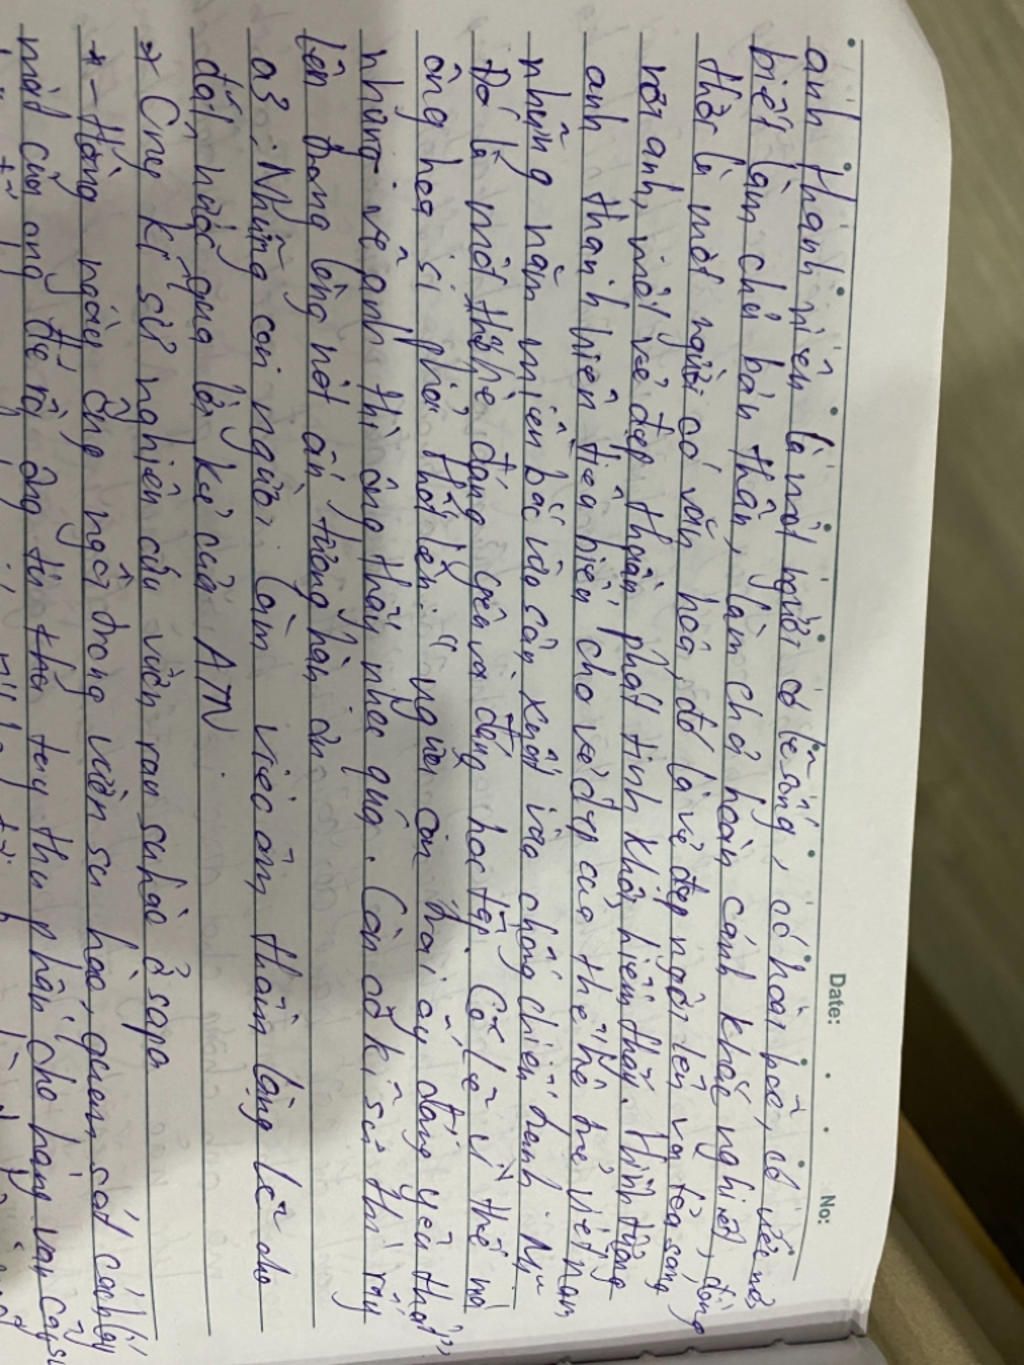 Date: No:
anh thanh niên là một người có lẽ sống, có hoài bão, có
biết làm chủ bản thân, làm chủ hoàn cảnh khắc nghiệt, đồng
thời là một người có văn hoá, đó là vẻ đẹp ngời lên và tỏa sáng
nơi anh, một vẻ đẹp thuần phát tinh khôi, hiếm thấy. Hình tượng
anh thanh niên tiêu biểu cho vẻ đẹp của thế hệ trẻ việt nam
những năm miền bắc vừa sản xuất vừa chống chiến tranh. Mỹ
Đó là một thế hệ đáng yêu và đáng học tập. Có lẽ vì thế mà
ông hoạ sĩ phải thốt lên: "người con trai ấy đáng yêu thật",
nhưng vẽ anh thì ông thấy nhọc quá. Còn cô kĩ sư thì
lên trong lòng một ấn tượng hàm ơn
a3, Những con người làm việc âm thầm lặng lẽ cho
đất nước qua lời kể của ATN.
* Ông kĩ sư nghiên cứu vườn rau su hào ở sapa
* - Hằng ngày ông ngồi trong vườn su hào, quan sát cách lấy
mật của ong để rồi ông tự tay thụ phấn cho hàng vạn cây su